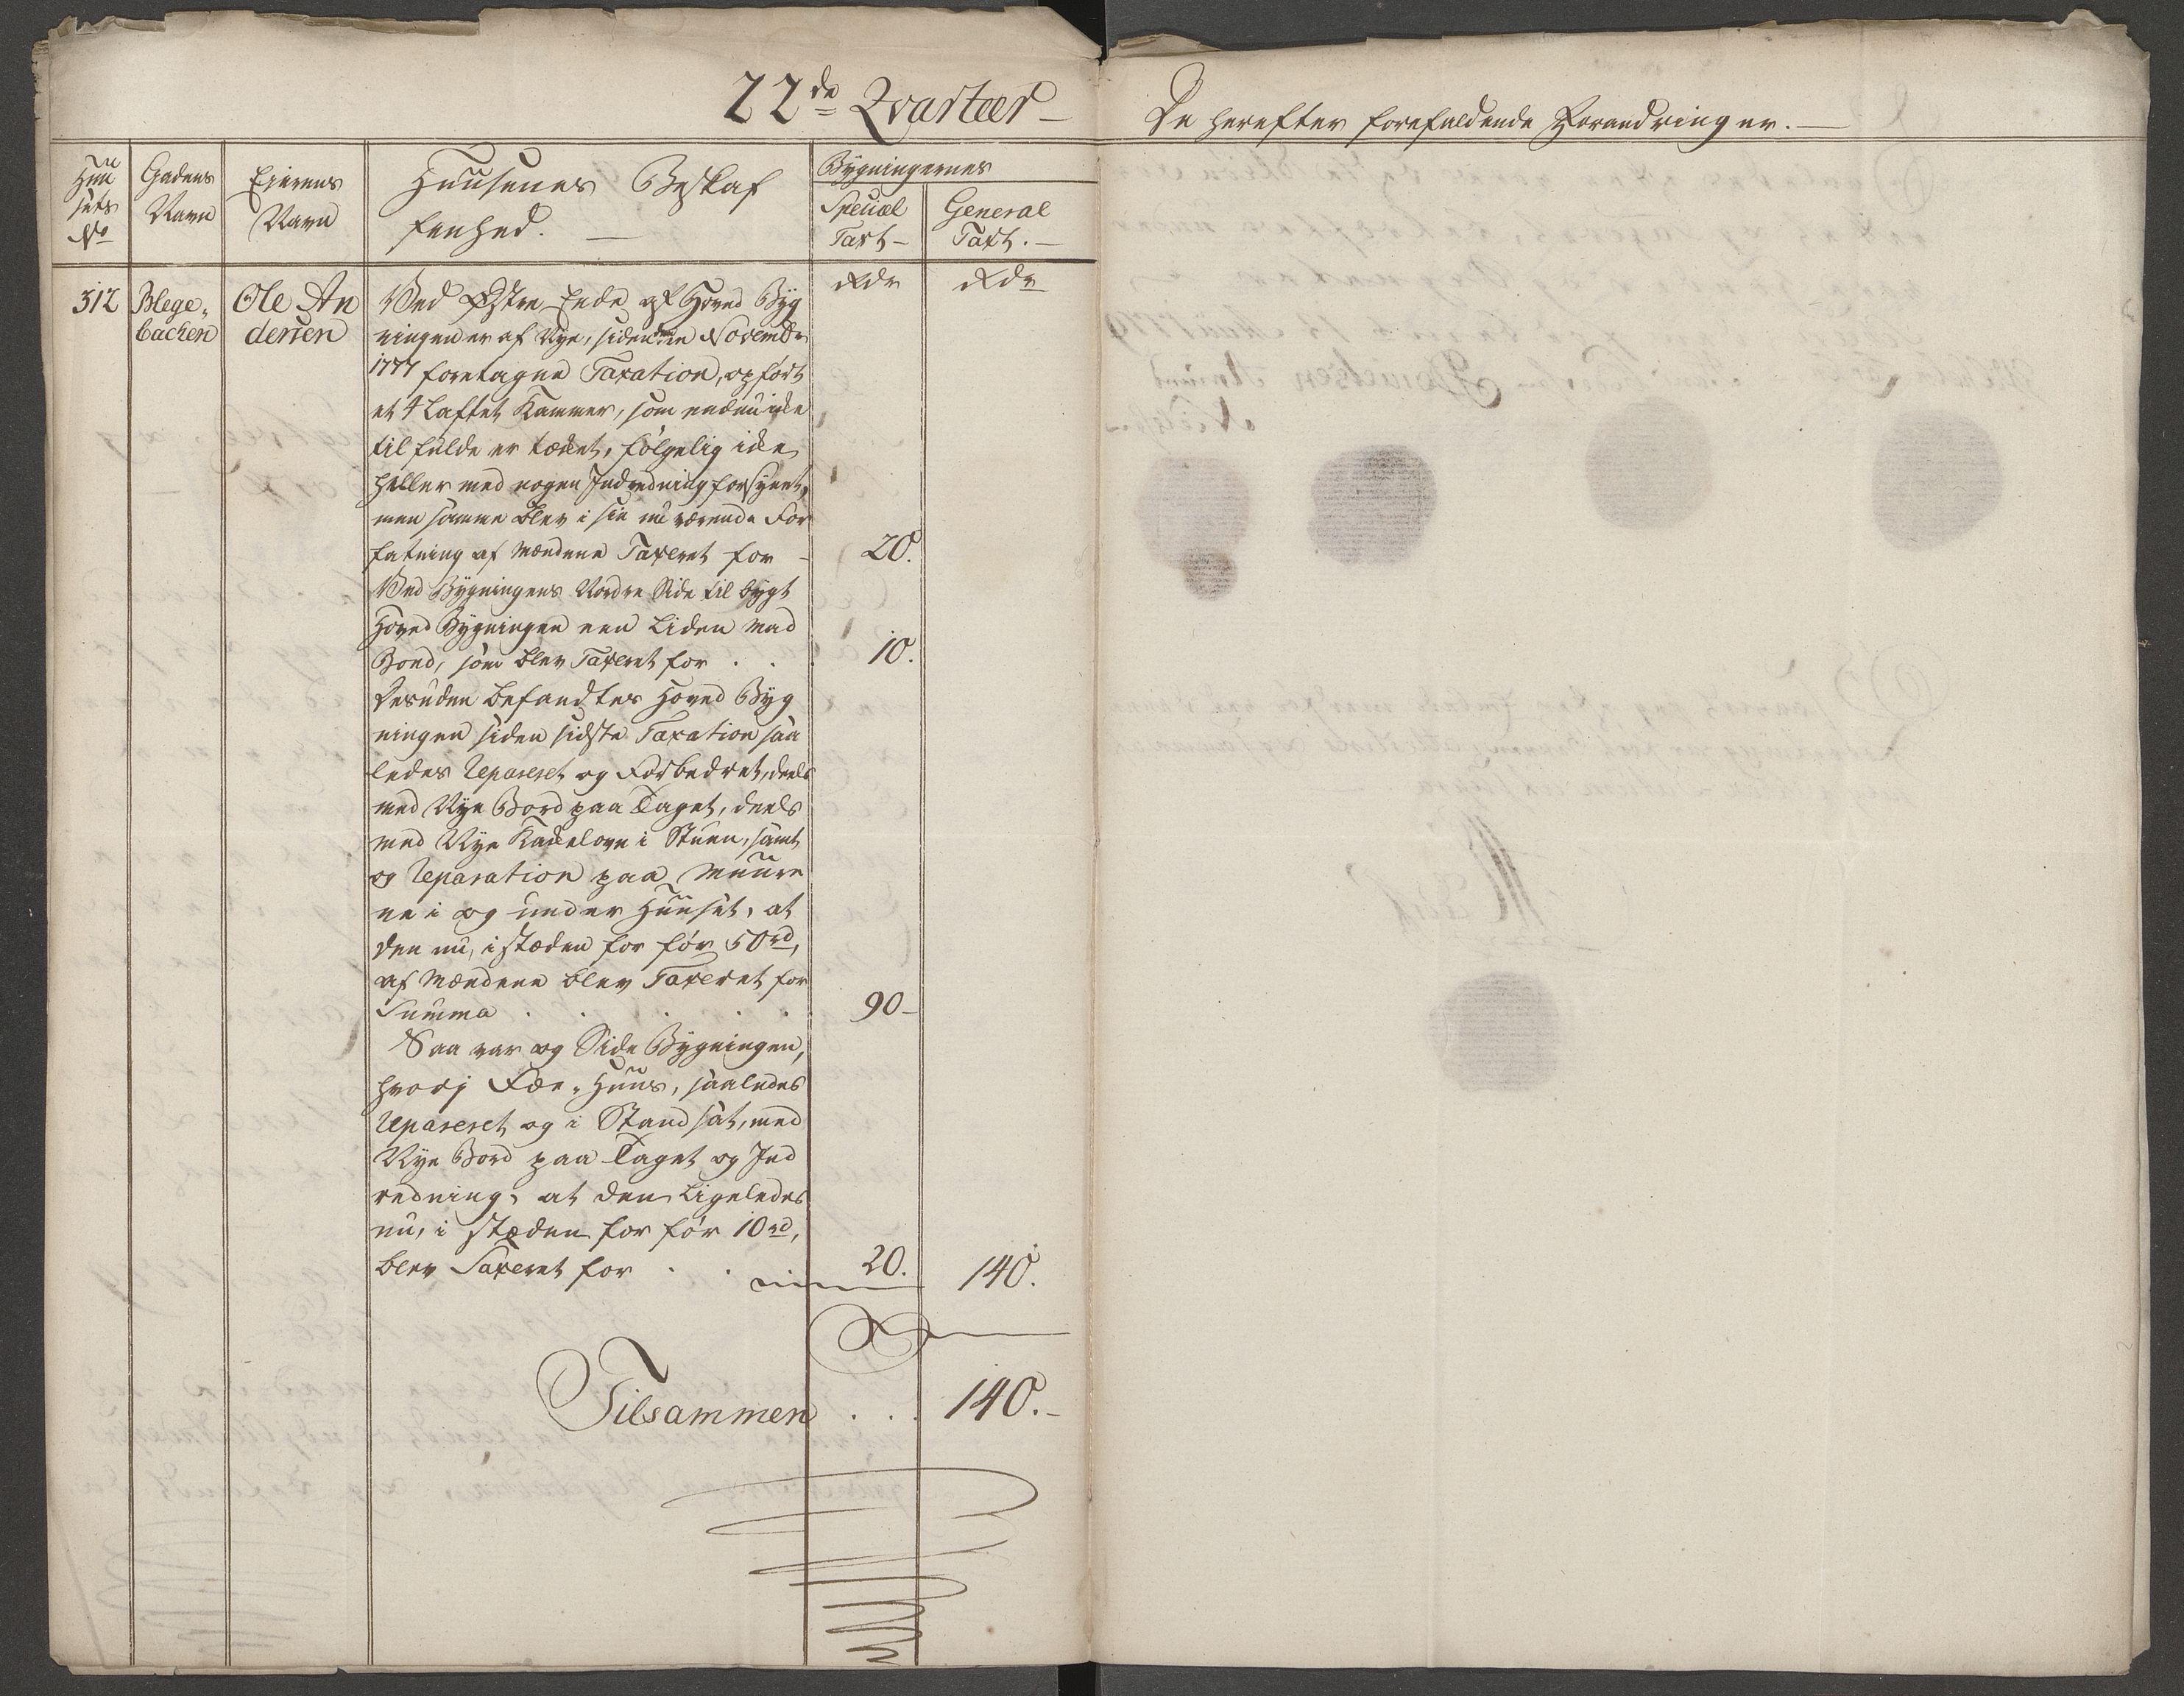 22de Qvarteer
De herefter forefaldende Forandringer.
Huu
sets
No
Gadens
Navn
Ejerens
Navn
Huusenes Beskaf
fenhed.
Bygningernes
Special
Taxt
General
Taxt.
Rdr
Rdr
312
Blege-
bachen
Ole An
dersen
Ved Østre Ende af Hoved Byg
ningen er af Nye, siden den in Novembr
1777 foretagne Taxation, opført
et 4 Laftet Kammer, som endnu icke
til fulde er tækket, følgelig icke
heller med nogen Indredning forsynet,
men samme blev i sin nu værende For
fatning af Mændene Taxeret for
20.
Ved Bygningens Nordre Side til bygt
Hoved Bygningen een Liden Mad
Boed, som blev Taxeret for . .
10.
Desuden befandtes Hoved Byg
ningen siden sidste Taxation saa
ledes Repareret og Forbedret, deels
med Nye Bord paa Taget, deels
med Nye Kackelovn i Stuen, samt
og Reparation paa Muure
ne i og under Huuset, at
den nu, i stæden for før 50rd,
af Mændene blev Taxeret for
Summa . . . . .
90-
Saa var og Side Bygningen,
hvorj Fæe-Huus, saaledes
Repareret og i Stand sat, med
Nye Bord paa Taget og Ind
redning, at den Ligeledes
nu, i stæden for før 10rd,
blev Taxeret for . .
20.
140.
Tilsammen . . .
140.-